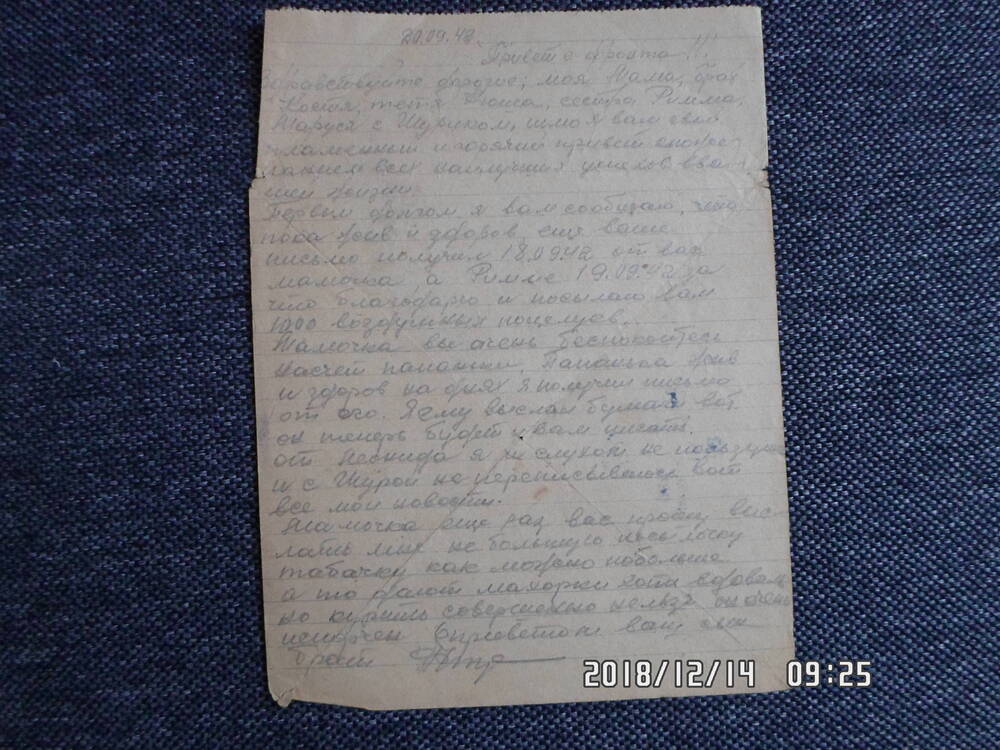 20.09.42
Привет с фронта!!!
Здравствуйте дорогие; моя Мама, брат
Костя, тетя Дюса, сестра Римма,
Маруся с Шуриком, шлю я вам свой
пламенный и горячий привет с поже-
ланием всех наилучших успехов в ва-
шей жизни
Первым долгом я вам сообщаю, что
пока жив и здоров, еще ваше
письмо получил 18.09.42 от вас
мамочка, а Римме 19.09.42 за
что благодарю и посылаю вам
1000 воздушных поцелуев.
Мамочка вы очень беспокоитесь
насчет папаньки. Папанька жив
и здоров на днях я получил письмо
от его. Я ему выслал бумаги вот
он теперь будет и вам писать.
от Леонида я ни слухом не пользуюсь
и с Шурой не переписываюсь вот
все мои новости.
Мамочка еще раз вас прошу выс-
лать мне не большую посылочку
табачку как можно побольше
а то дают махорки хоть вдоволь
но курить совершенно нельзя он очень
испорчен с приветом ваш сын
брат
2018/12/14 09:25